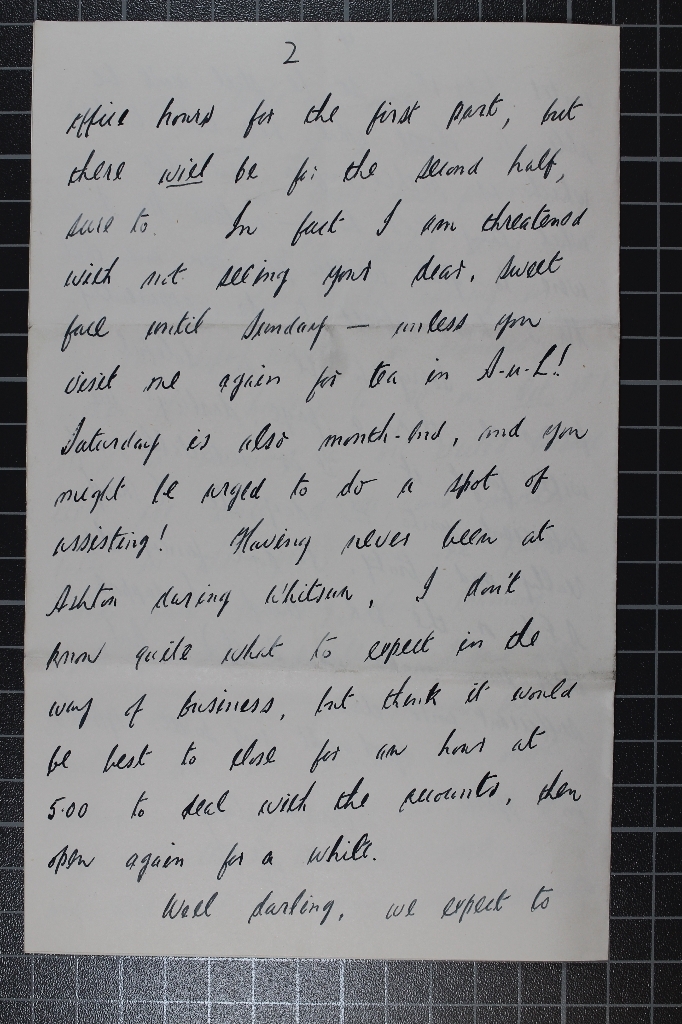 2
office hours for the first part, but
there will be for the second half,
sure to. In fact I am threatened
with not seeing your dear, sweet
face until Sunday — unless you
visit me again for tea in A-u-L!
Saturday is also month-end, and you
might be urged to do a spot of
assisting! Having never been at
Ashton during Whitsun, I don't
know quite what to expect in the
way of business, but think it would
be best to close for an hour at
5.00 to deal with the accounts, then
open again for a while.
Well darling, we expect to